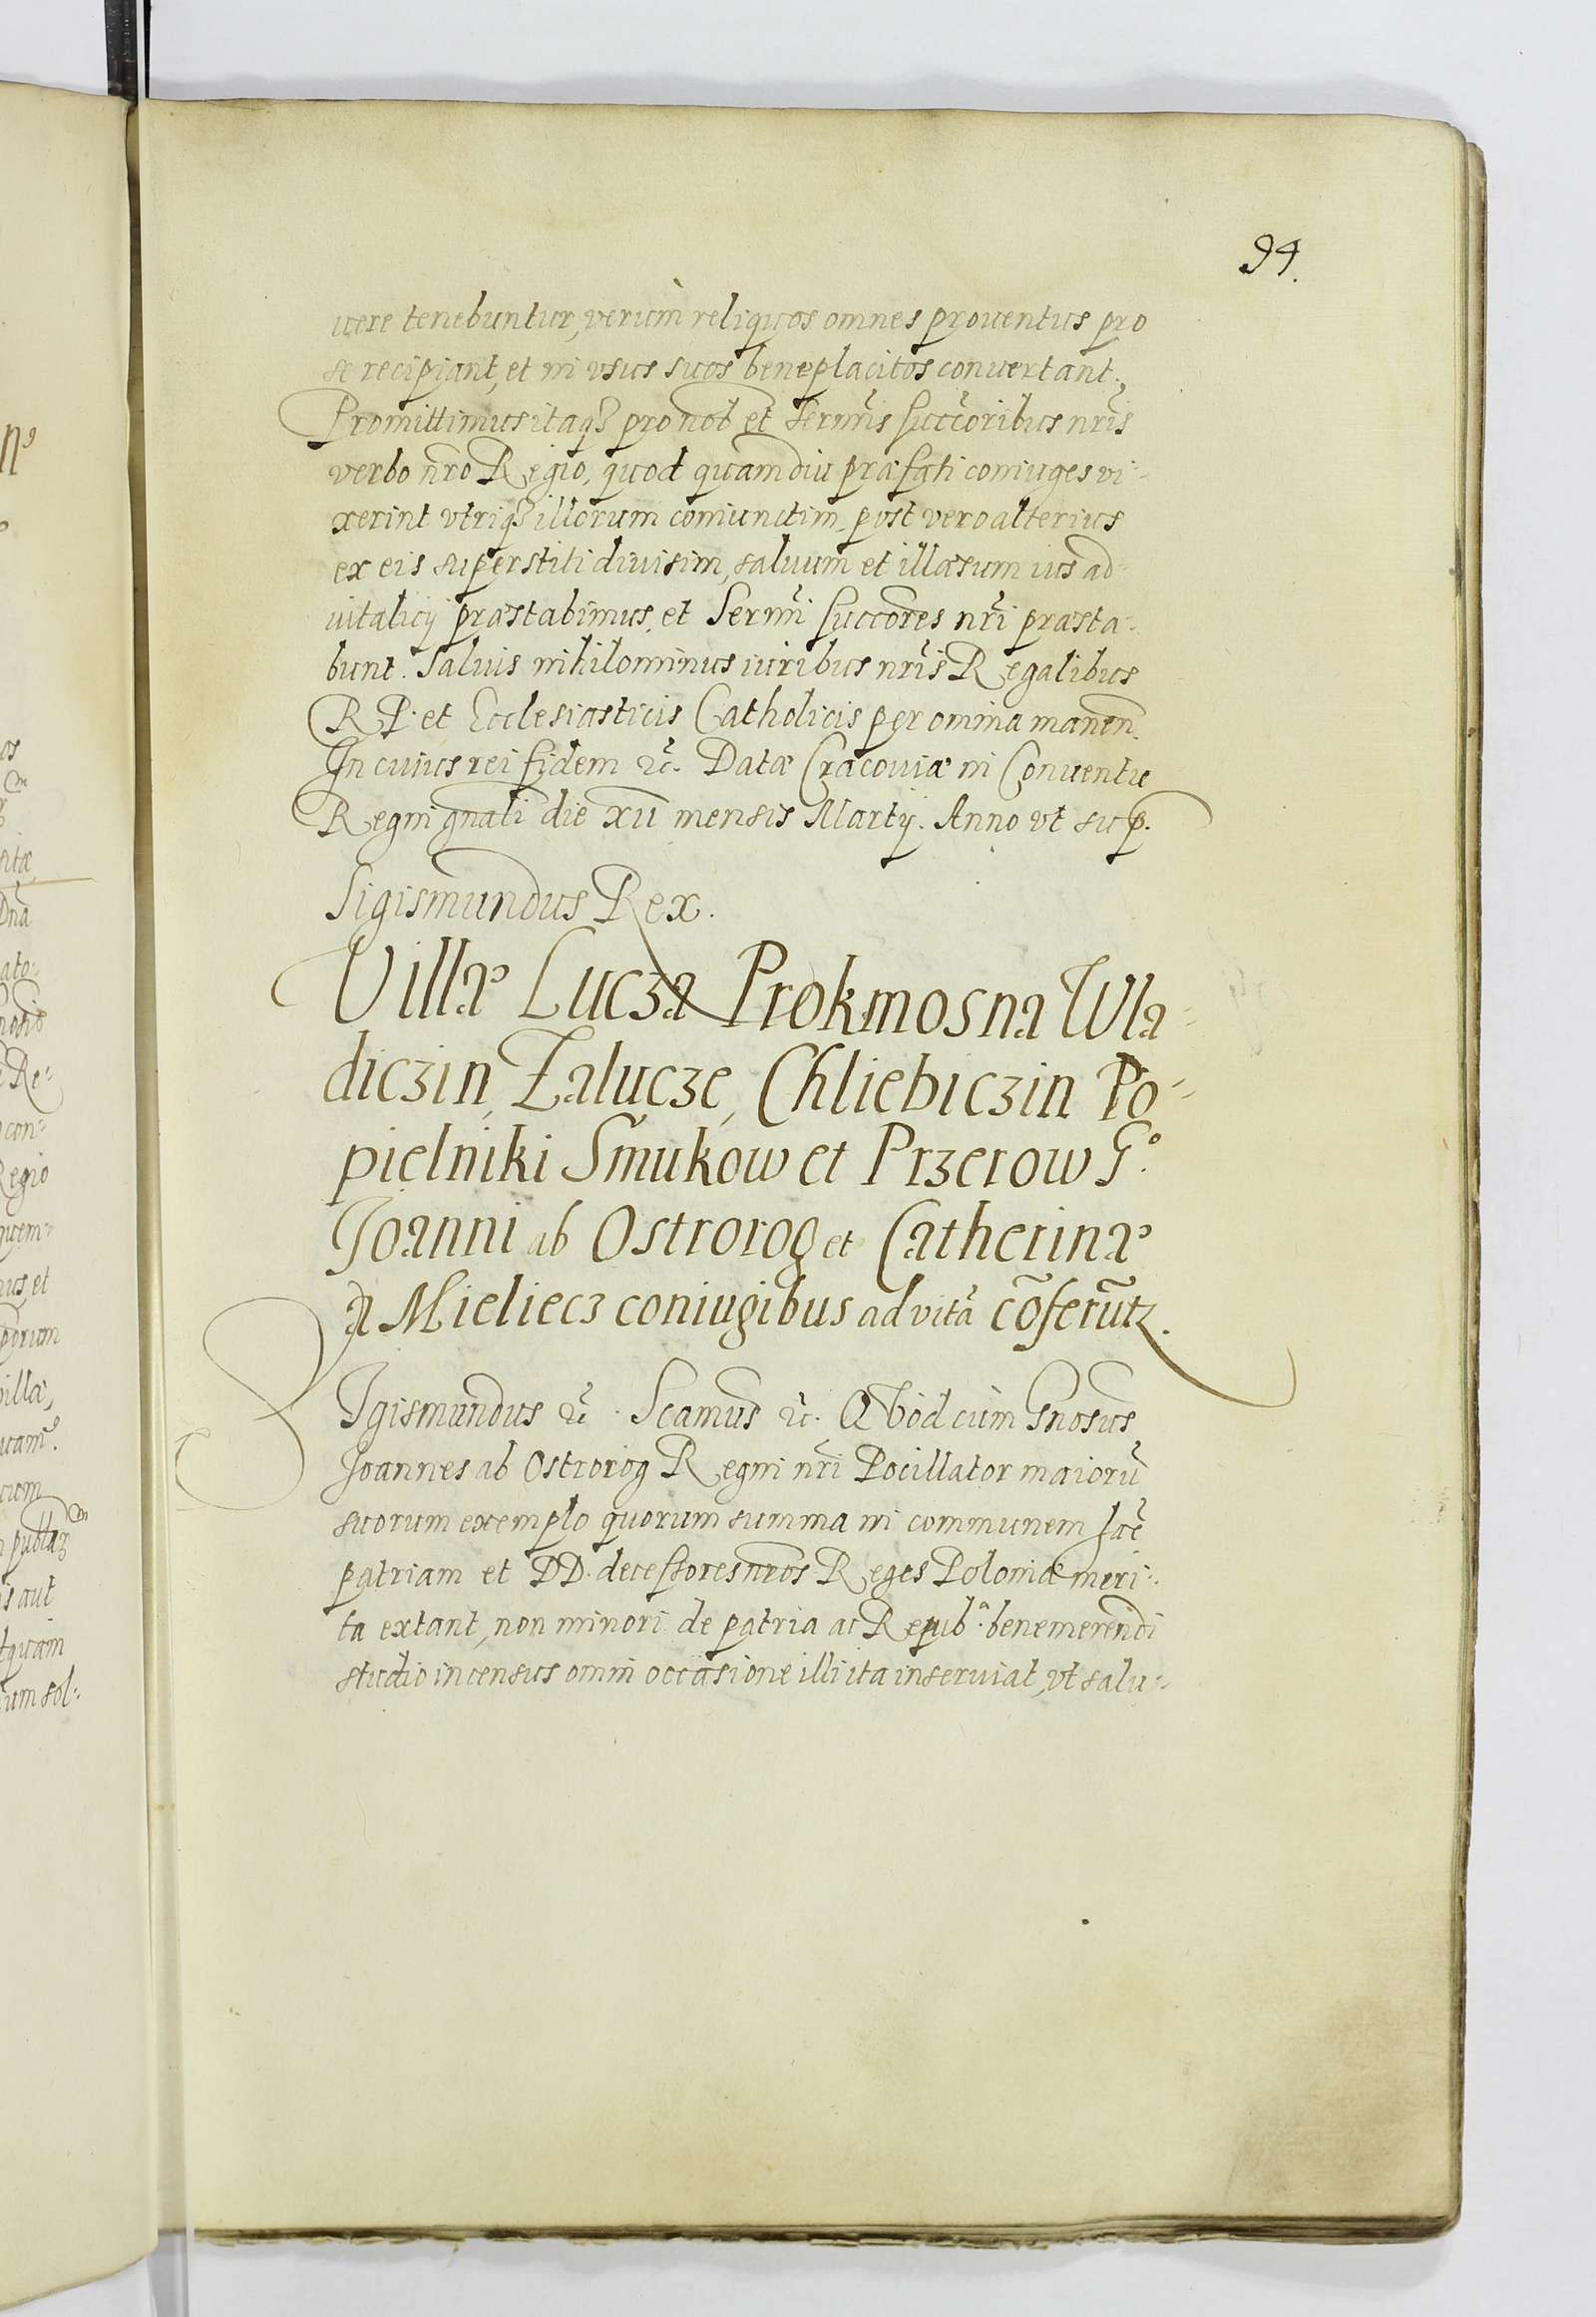 94.
uere tenebuntur, verùm reliquos omnes prouentus pro
se recipiant, et in vsus suos beneplacitos conuertant.
Promittimus itaq3 pro nob et Sermis succoribus nris
verbo nro Regio, quod quamdiu præfati coniuges vi-
xerint vtriq3 illorum coniunctim, post vero alterius
ex eis superstiti diuisim, saluum et illæsum ius ad-
uitalicij præstabimus, et Sermi succores nri præsta-
bunt. Saluis nihilominus iuribus nris Regalibus
R P. et Ecclesiasticis Catholicis per omnia manen.
In cuius rei fidem etc. Datæ Cracouiæ in Conuentu
Regni gnali die xii mensis Martij. Anno vt sup.
Sigismundus Rex.
Villæ Lucza Prokmosna Wla-
diczin, Zalucze, Chliebiczin Po-
pielniki Smukow et Przerow G°.
Joanni ab Ostrorog et Catherinæ
a Mieliecz coniugibus ad vitã cõferũtz.
SJgismundus etc. Scamus etc. QVod cùm Gnosus
Joannes ab Ostrorog Regni nri Pocillator maiorũ
suorum exemplo quorum summa in communem hãc
patriam et DD. decessores nros Reges Poloniæ meri-
ta extant, non minori de patria ac Repub.ª benemerendi
studio incensus omni occasione illi ita inseruiat, vt salu-